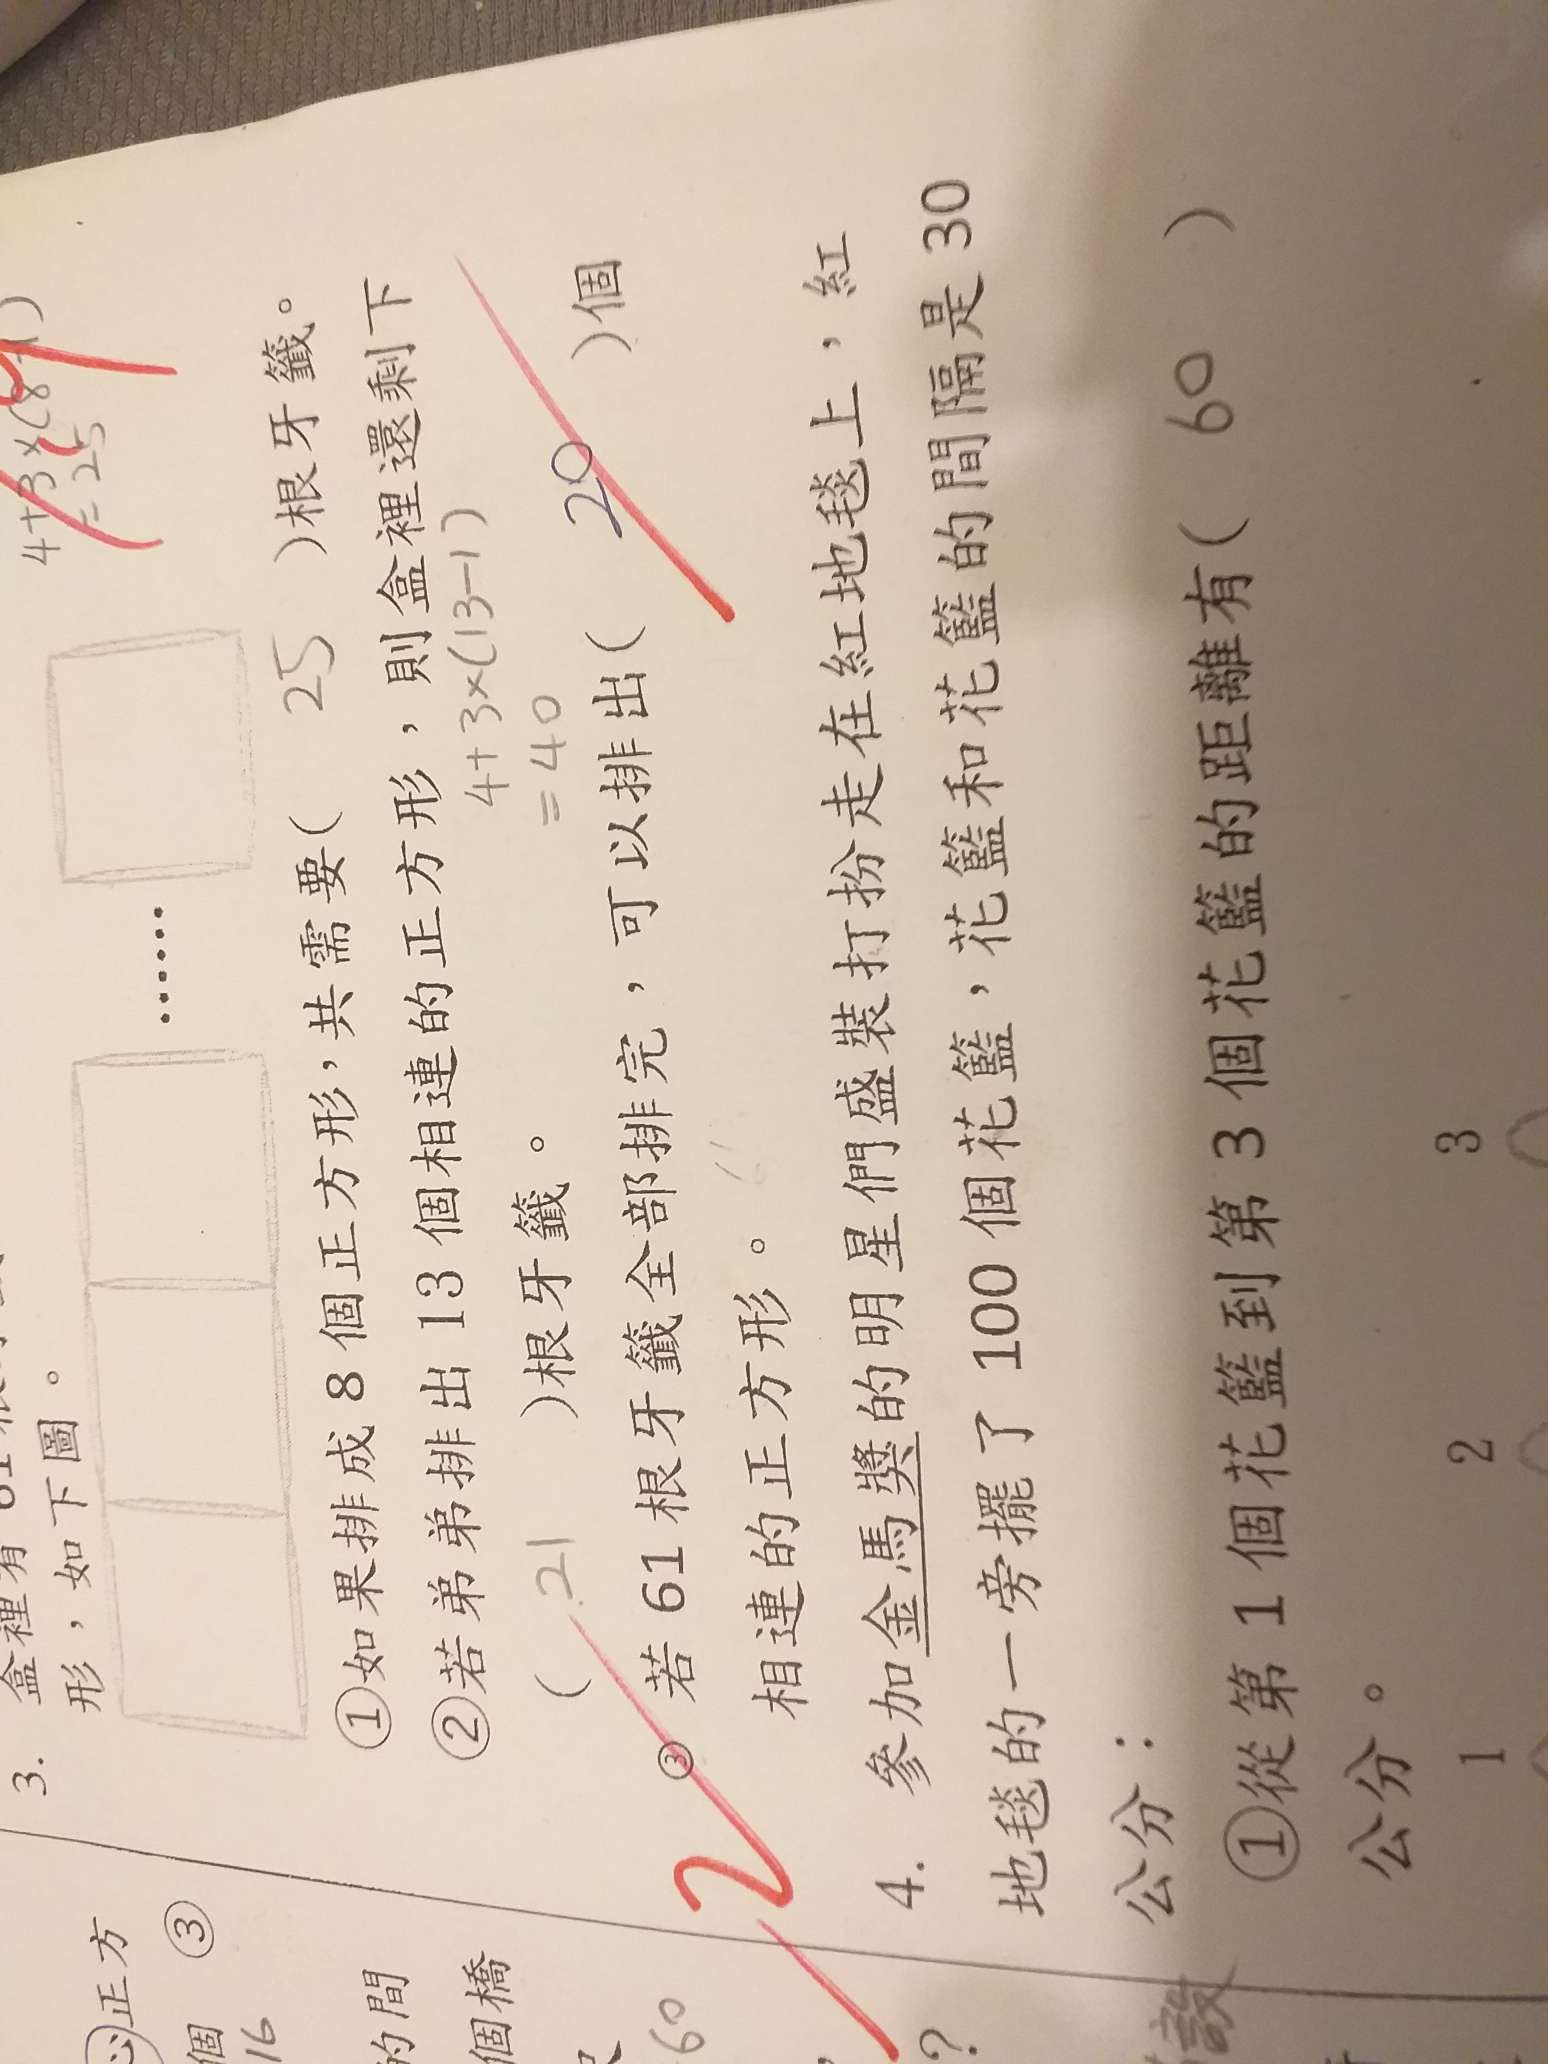 4+3×(8-1)
=25
3. 盒裡有61根
形，如下圖。
……
①如果排成8個正方形，共需要( 25 )根牙籤。
②若弟弟排出13個相連的正方形，則盒裡還剩下
4+3×(13-1)
=40
( 21 )根牙籤。
③若61根牙籤全部排完，可以排出( 20 )個
相連的正方形。
2
4. 參加金馬獎的明星們盛裝打扮走在紅地毯上，紅
地毯的一旁擺了100個花籃，花籃和花籃的間隔是30
公分：
①從第1個花籃到第3個花籃的距離有( 60 )
公分。
1 2 3
正方
個 ③
16
的間
個橋
60
?